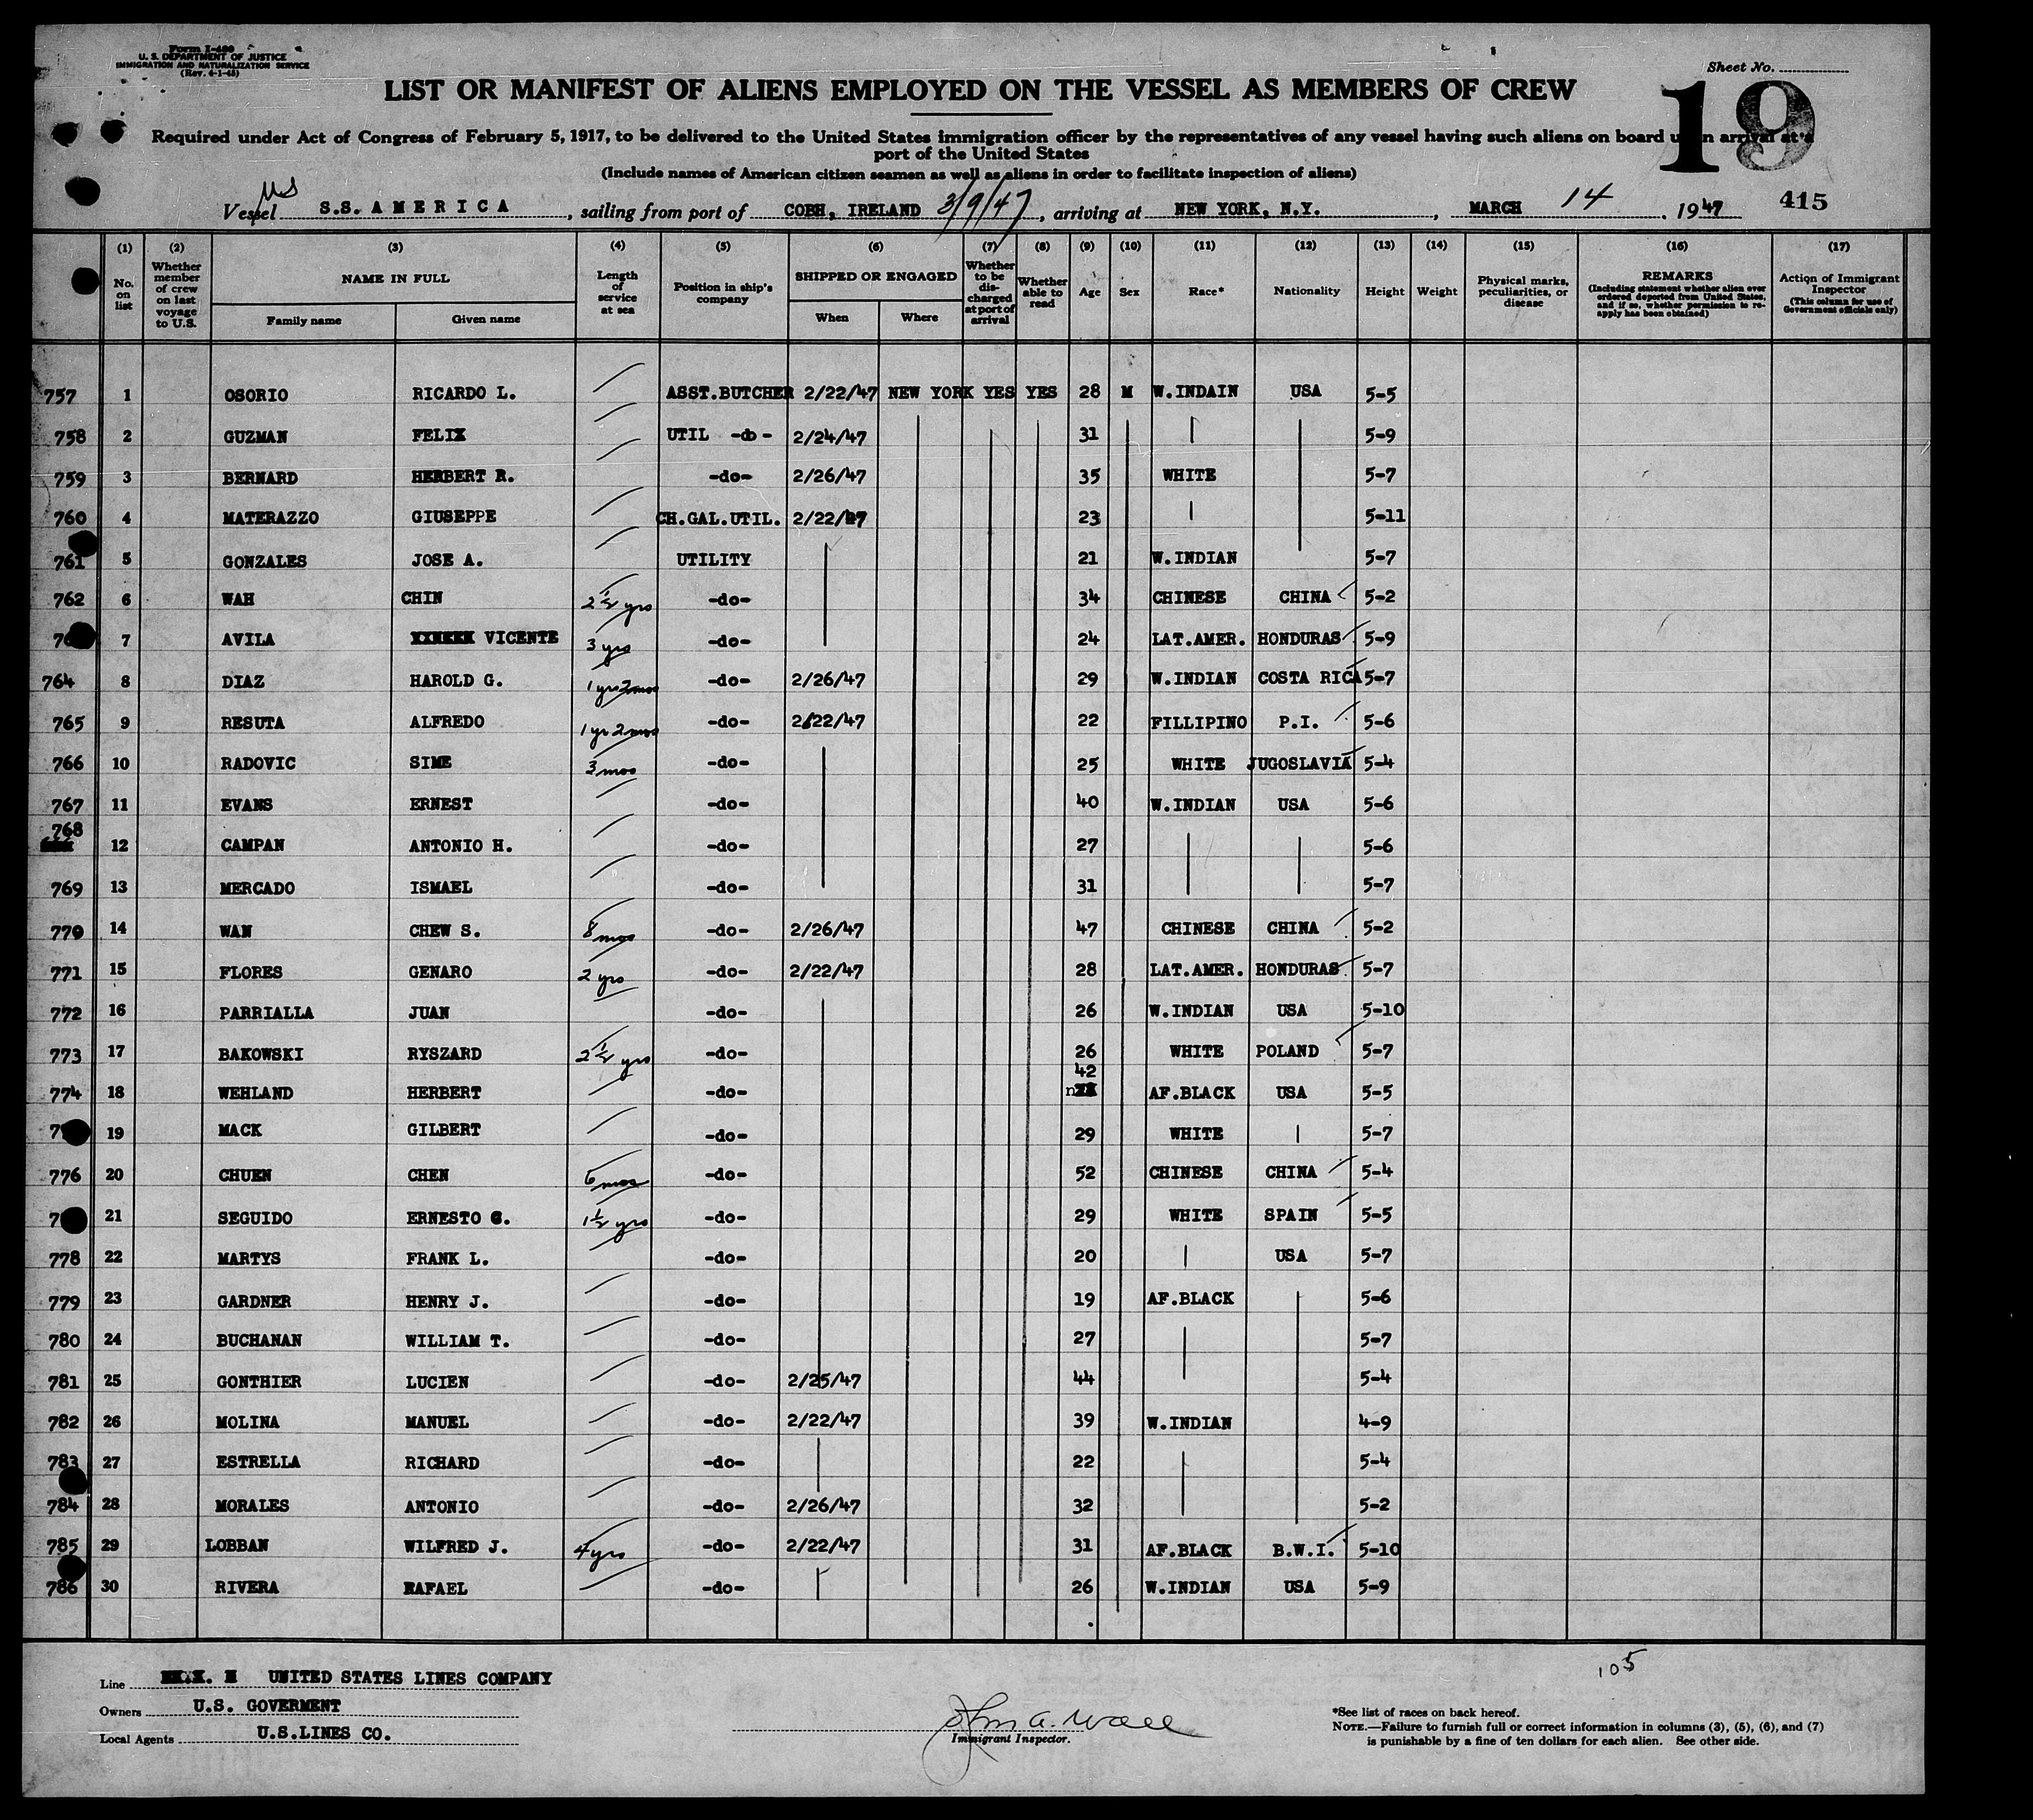 Form I-480
U. S. DEPARTMENT OF JUSTICE
IMMIGRATION AND NATURALIZATION SERVICE
(Rev. 4-1-45)
Sheet No.
19
LIST OR MANIFEST OF ALIENS EMPLOYED ON THE VESSEL AS MEMBERS OF CREW
Required under Act of Congress of February 5, 1917, to be delivered to the United States immigration officer by the representatives of any vessel having such aliens on board upon arrival at a
port of the United States
(Include names of American citizen seamen as well as aliens in order to facilitate inspection of aliens)
Vessel S.S. AMERICA, sailing from port of COBH, IRELAND 3/9/47, arriving at NEW YORK, N.Y., MARCH 14, 1947 415
(1) (2) (3) (4) (5) (6) (7) (8) (9) (10) (11) (12) (13) (14) (15) (16) (17)
No. on list
Whether member of crew on last voyage to U.S.
NAME IN FULL
Family name Given name
Length of service at sea
Position in ship's company
SHIPPED OR ENGAGED
When Where
Whether to be discharged at port of arrival
Whether able to read
Age Sex Race* Nationality Height Weight
Physical marks, peculiarities, or disease
REMARKS
(Including statement whether alien ever ordered deported from United States, and if so, whether permission to re-apply has been obtained)
Action of Immigrant Inspector
(This column for use of Government officials only)
757 1 OSORIO RICARDO L. ASST.BUTCHER 2/22/47 NEW YORK YES YES 28 M W.INDAIN USA 5-5
758 2 GUZMAN FELIX UTIL -do- 2/24/47 31 5-9
759 3 BERNARD HERBERT R. -do- 2/26/47 35 WHITE 5-7
760 4 MATERAZZO GIUSEPPE CH.GAL.UTIL. 2/22/47 23 5-11
761 5 GONZALES JOSE A. UTILITY 21 W.INDIAN 5-7
762 6 WAH CHIN 2½ yrs -do- 34 CHINESE CHINA 5-2
7 AVILA VICENTE 3 yrs -do- 24 LAT.AMER. HONDURAS 5-9
764 8 DIAZ HAROLD G. 1 yr 2 mos -do- 2/26/47 29 W.INDIAN COSTA RICA 5-7
765 9 RESUTA ALFREDO 1 yr 2 mos -do- 2/22/47 22 FILLIPINO P.I. 5-6
766 10 RADOVIC SIME 3 mos -do- 25 WHITE JUGOSLAVIA 5-4
767 11 EVANS ERNEST -do- 40 W.INDIAN USA 5-6
768 12 CAMPAN ANTONIO H. -do- 27 5-6
769 13 MERCADO ISMAEL -do- 31 5-7
770 14 WAN CHEW S. 8 mos -do- 2/26/47 47 CHINESE CHINA 5-2
771 15 FLORES GENARO 2 yrs -do- 2/22/47 28 LAT.AMER. HONDURAS 5-7
772 16 PARRIALLA JUAN -do- 26 W.INDIAN USA 5-10
773 17 BAKOWSKI RYSZARD 2½ yrs -do- 26 WHITE POLAND 5-7
774 18 WEHLAND HERBERT -do- 42 AF.BLACK USA 5-5
19 MACK GILBERT -do- 29 WHITE 5-7
776 20 CHUEN CHEN 5 mos -do- 52 CHINESE CHINA 5-4
21 SEGUIDO ERNESTO C. 1½ yrs -do- 29 WHITE SPAIN 5-5
778 22 MARTYS FRANK L. -do- 20 USA 5-7
779 23 GARDNER HENRY J. -do- 19 AF.BLACK 5-6
780 24 BUCHANAN WILLIAM T. -do- 27 5-7
781 25 GONTHIER LUCIEN -do- 2/25/47 44 5-4
782 26 MOLINA MANUEL -do- 2/22/47 39 W.INDIAN 4-9
783 27 ESTRELLA RICHARD -do- 22 5-4
784 28 MORALES ANTONIO -do- 2/26/47 32 5-2
785 29 LOBBAN WILFRED J. 4 yrs -do- 2/22/47 31 AF.BLACK B.W.I. 5-10
786 30 RIVERA RAFAEL -do- 26 W.INDIAN USA 5-9
105
Line UNITED STATES LINES COMPANY
Owners U.S. GOVERMENT
Local Agents U.S.LINES CO.
John A. Wall
Immigrant Inspector.
*See list of races on back hereof.
NOTE.—Failure to furnish full or correct information in columns (3), (5), (6), and (7)
is punishable by a fine of ten dollars for each alien. See other side.